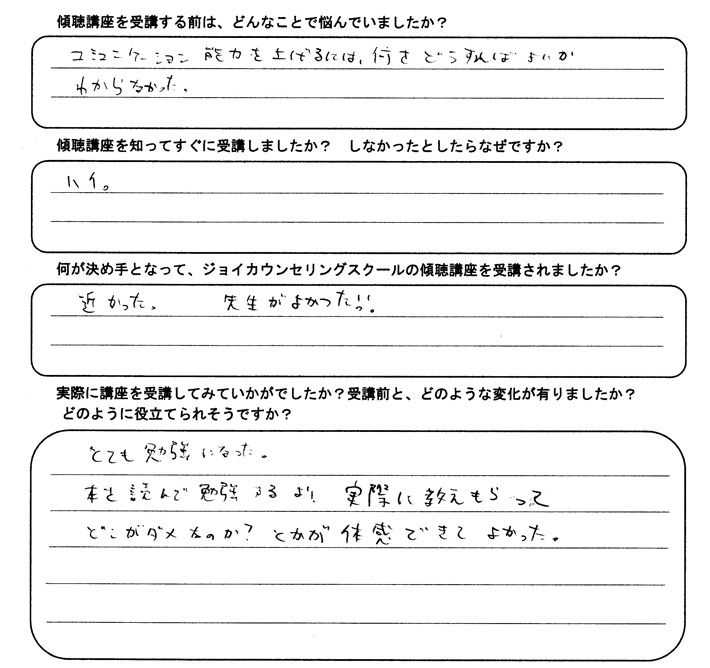 傾聴講座を受講する前は、どんなことで悩んでいましたか？
コミュニケーション能力を上げるには、何をどうすればよいか
わからなかった。
傾聴講座を知ってすぐに受講しましたか？　しなかったとしたらなぜですか？
ハイ。
何が決め手となって、ジョイカウンセリングスクールの傾聴講座を受講されましたか？
近かった。　先生がよかったっ!!。
実際に講座を受講してみていかがでしたか？受講前と、どのような変化が有りましたか？
どのように役立てられそうですか？
とても勉強になった。
本を読んで勉強するより、実際に教えもらって
どこがダメなのか？とかが体感できてよかった。